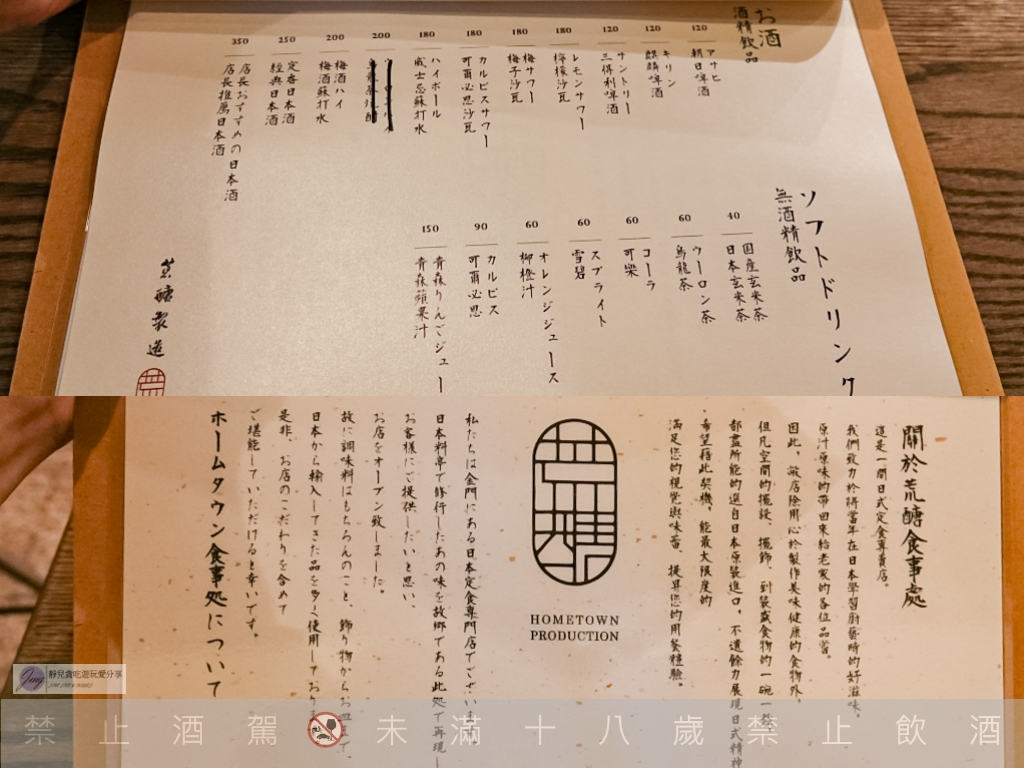 お酒
酒精飲品
120
アサヒ
朝日啤酒
120
キリン
麒麟啤酒
120
サントリー
三得利啤酒
180
レモンサワー
檸檬沙瓦
180
梅サワー
梅子沙瓦
180
カルピスサワー
可爾必思沙瓦
180
ハイボール
威士忌蘇打水
200
200
梅酒ハイ
梅酒蘇打水
250
定番日本酒
經典日本酒
350
店長おすすめの日本酒
店長推薦日本酒
ソフトドリンク
無酒精飲品
40
国産玄米茶
日本玄米茶
60
ウーロン茶
烏龍茶
60
コーラ
可樂
60
スプライト
雪碧
60
オレンジジュース
柳橙汁
90
カルピス
可爾必思
150
青森りんごジュー
青森蘋果汁
荒醣製造
關於荒醣食事處
這是一間日式定食專賣店。
我們致力於將當年在日本學習廚藝時的好滋味。
原汁原味的帶回來給老家的各位品嘗。
因此、敝店除用心於製作美味健康的食物外、
但凡空間的擺設、擺飾、到裝盛食物的一碗一
都盡所能的選自日本原裝進口。不遺餘力展現日式精神
希望藉此契機、能最大限度的
滿足您的視覺與味蕾、提昇您的用餐體驗。
HOMETOWN
PRODUCTION
私たちは金門にある日本定食専門店でございます。
日本料亭で修行したあの味を故郷である此処で再現し
お客様にご提供したいと思い、
お店をオープン致しました。
故に調味料はもちろんのこと、飾り物からお皿まで、
日本から輸入してきた品を多く使用しており
是非、お店のこだわりを含めて
ご堪能していただけると幸いです。
ホームタウン食事処について
靜兒貪吃遊玩愛分享
禁止酒駕 未滿十八歲禁止飲酒